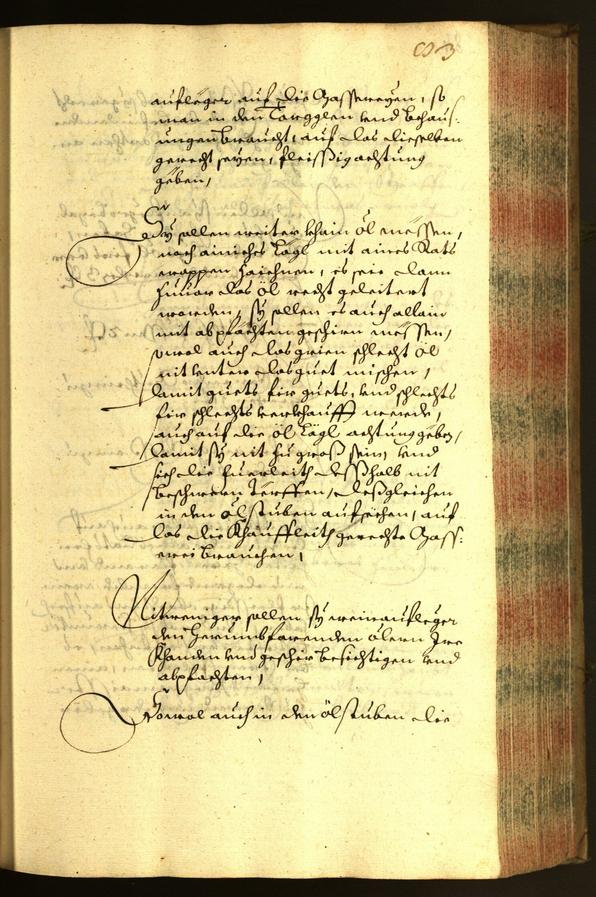 aufleger auf die Gassereyen, so
man in den Torgglen und behaus-
ungen braucht, auf das dieselben
gerecht seyen, fleissig achtung
geben,
Sy sollen weiter khain öl messen,
noch ainiches Lägl mit aines Rats
wappen zaichnen, es seie dann
zuuor das öl recht geleitert
worden, sy sollen es auch allain
mit abpfachten geschirn messen,
sowol auch das grien schlecht öl
nit unter das guet mischen,
damit guets fir guets, und schlechts
fir schlechts verkhaufft werde,
auch auf die öl Lägl achtung geben,
damit sy nit zu groß sein, und
sich die fuerleith desshalb nit
beschwern derffen, desgleichen
in den ölstuben aufsehen, auf
das die Khauffleith gerechte Gass-
erei brauchen,
Nitweniger sollen sy weinaufleger
den herumbfarenden ölern Ire
Khanden und geschir besichtigen und
abpfachten,
Sowol auch in den ölstuben die